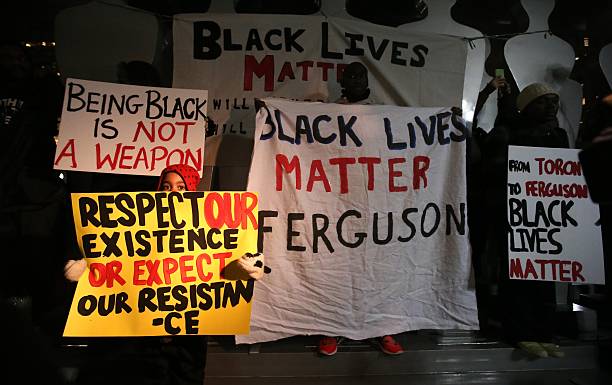 BLACK LIVES
MATTER
WILL
WILL
BEING BLACK
IS NOT
A WEAPON
RESPECT OUR
EXISTENCE
OR EXPECT
OUR RESISTAN
-CE
BLACK LIVES
MATTER
FERGUSON
FROM TORON
TO FERGUSON
BLACK
LIVES
MATTER